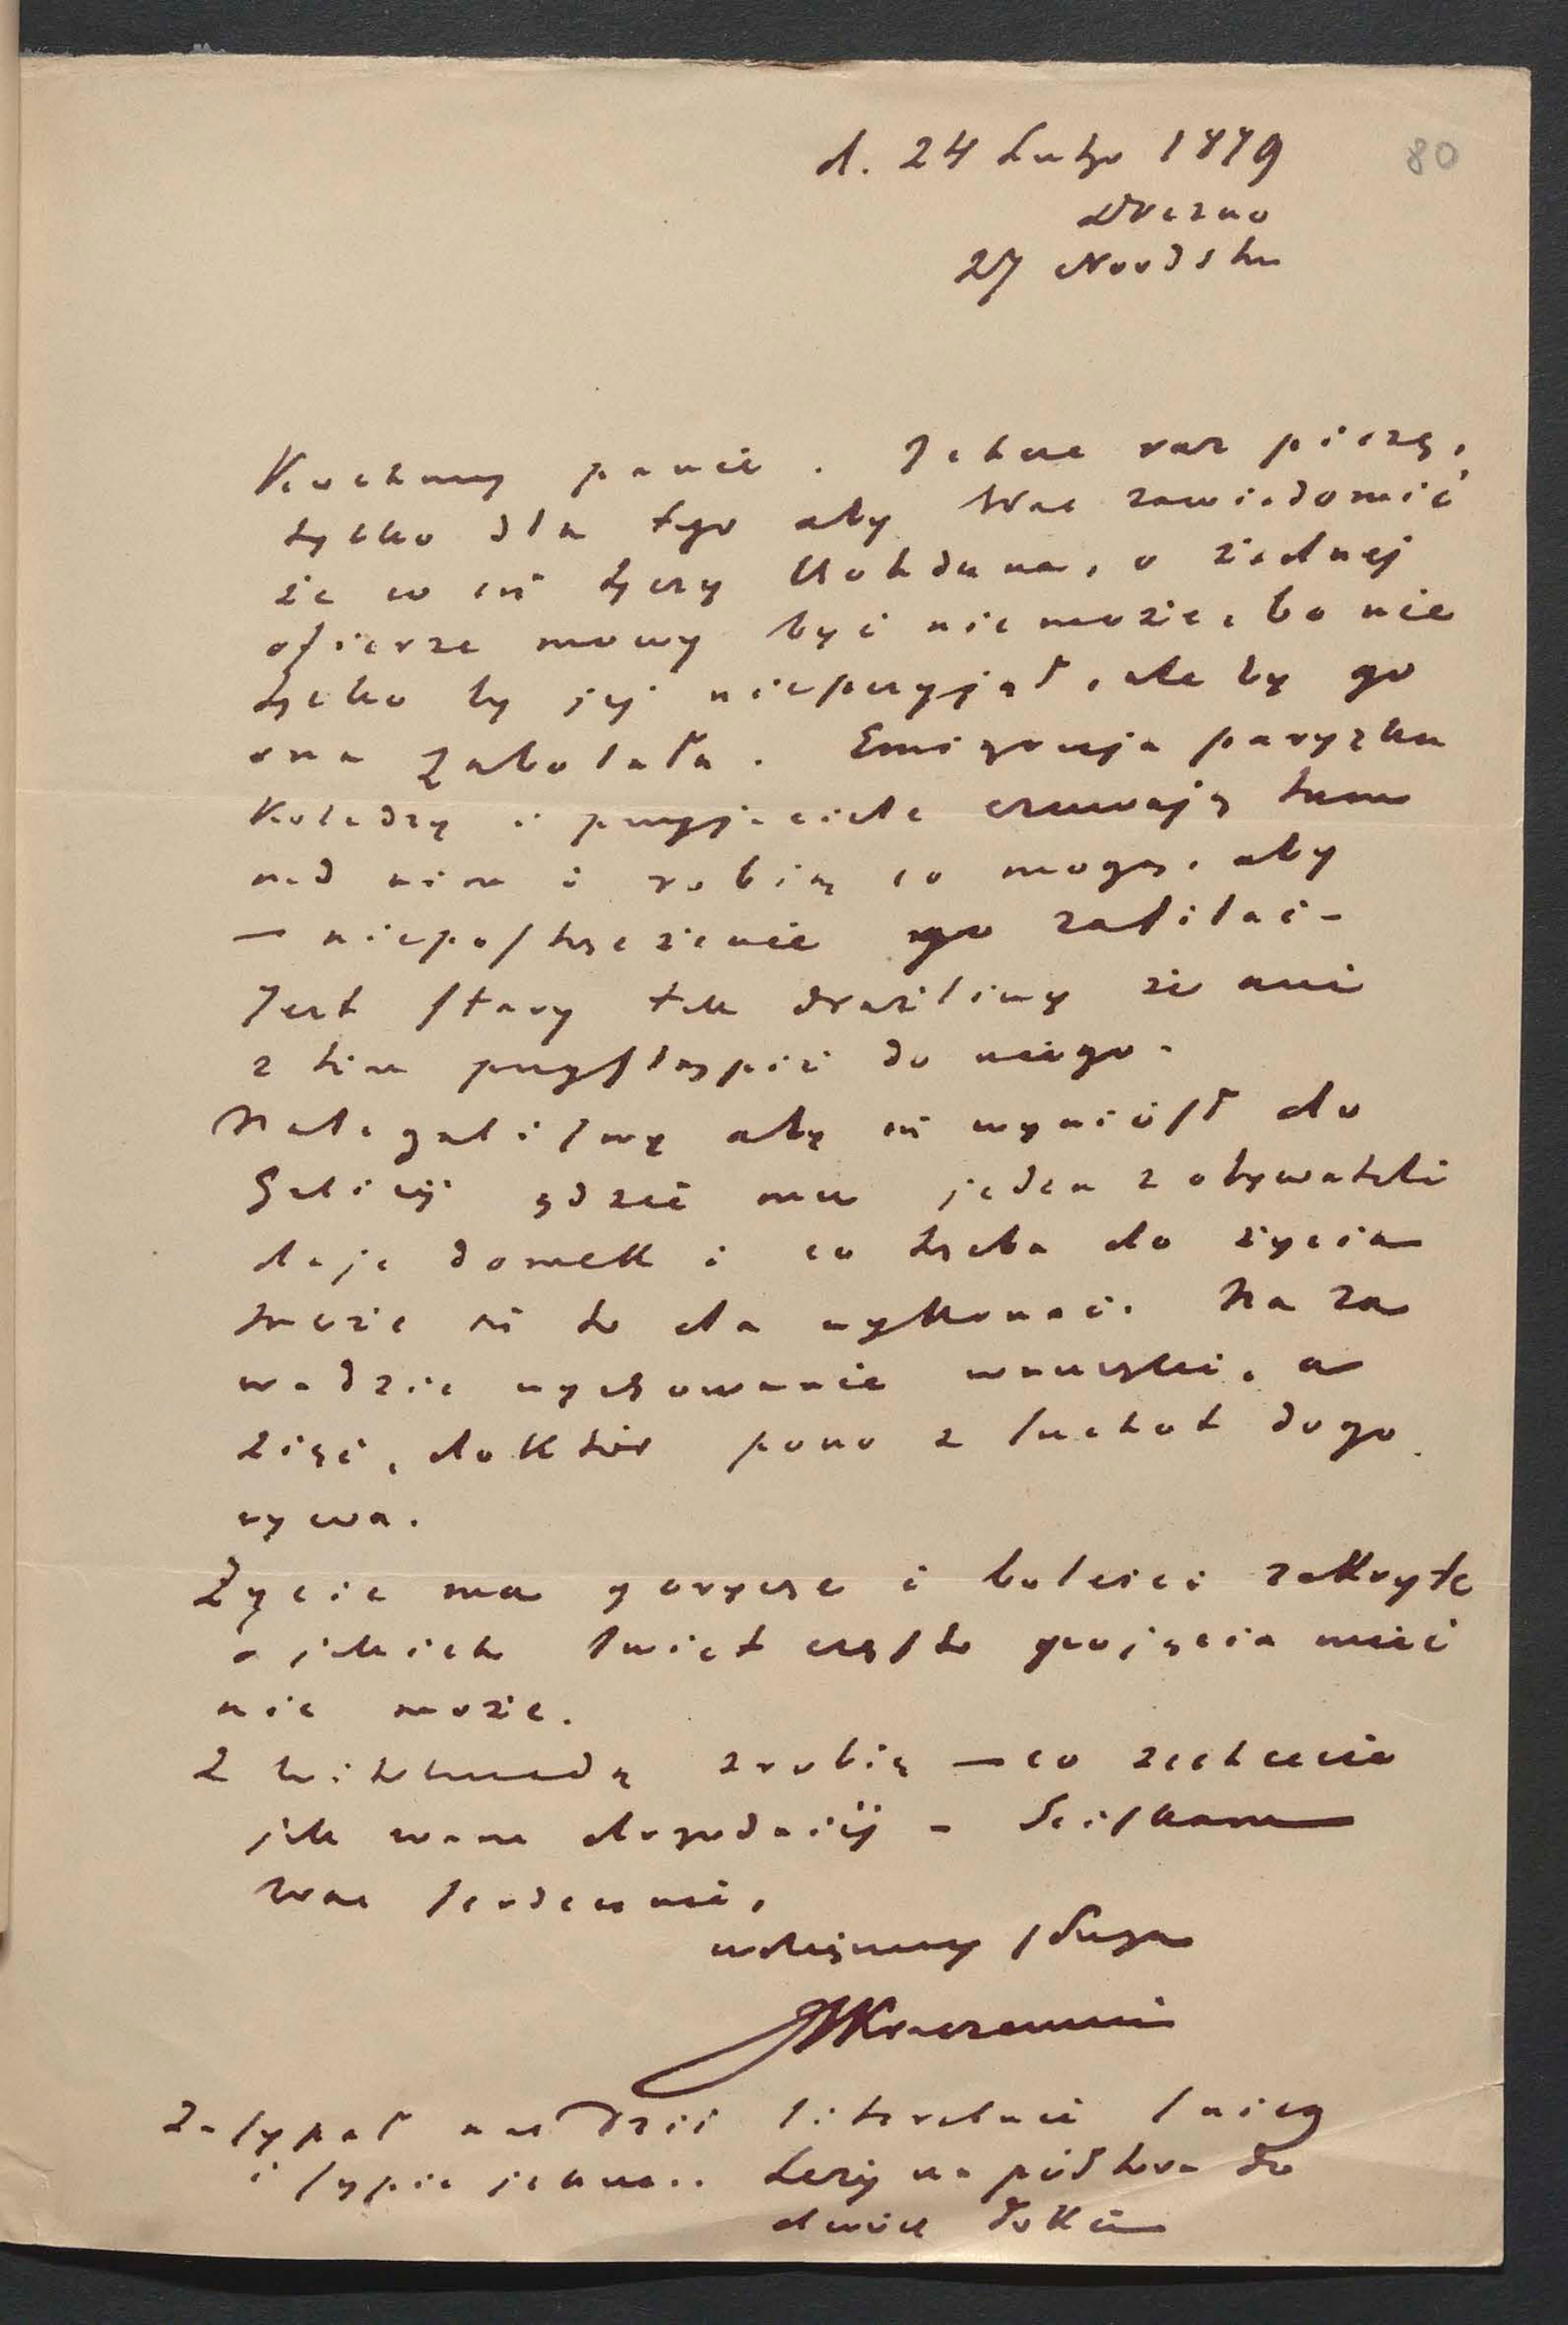 d. 24 Lutego 1879
80
Drezno
27 Nordstr
Kochany panie. Jeszcze raz piszę,
tylko dla tego aby Was zawiadomić
że co się tyczy Bohdana, o żadnej
ofierze mowy być niemoże, bo nie
tylko by jej nieprzyjął, ale by go
ona zabolała. Emigracja paryzka
Koledzy i przyjaciele czuwają tam
nad nim i robią co mogą, aby
— niepostrzeżenie go zasilać —
Jest stary tak drażliwy że ani
z kim przystąpić do niego.
Nalegaliśmy aby się wyniósł do
Galicji gdzie mu jeden z obywateli
daje domek i co trzeba do życia
może się to da wykonać. Na za
wadzie wychowanie wnuczki, a
zięć, doktór pono z suchot dogo
rywa.
Życie ma gorycze i boleści zakryte
o jakich świat często pojęcia mieć
nie może.
Z zrobię — co zechcecie
jak wam dogodniéj — Sciskam
Was serdecznie,
uniżony sługa
JIKraszewski
Zasypał nas dziś literalnie śnieg
i sypie jeszcze.. Leży na półtora do
dwóch łokci —